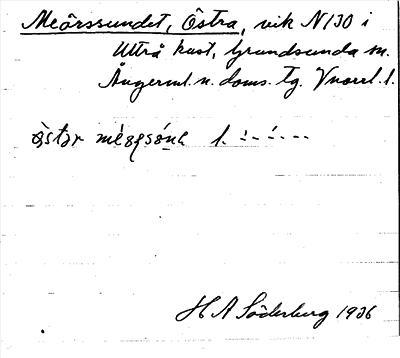 Meårssundet, Östra, vik N130 i
Uttrå kust, Grundsunda sn.
Ångerml. n. doms. tg. Vnorrl. l.
östər
H A Söderberg 1936